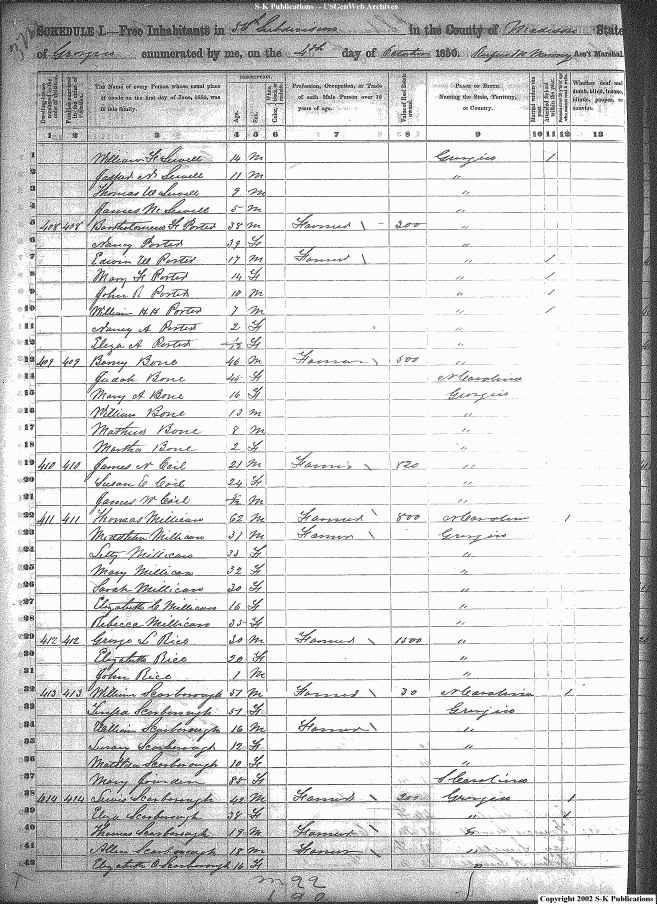 S-K Publications -- USGenWeb Archives
SCHEDULE I.—Free Inhabitants in 50th Subdivision in the County of Madison State
of Georgia enumerated by me, on the 4th day of October 1850. Ass't Marshal.
DESCRIPTION.
The Name of every Person whose usual place of abode on the first day of June, 1850, was in this family.
Age.
Sex.
Color, White, black, or mulatto.
Profession, Occupation, or Trade of each Male Person over 15 years of age.
Value of Real Estate owned.
PLACE OF BIRTH. Naming the State, Territory, or Country.
Married within the year.
Whether deaf and dumb, blind, insane, idiotic, pauper, or convict.
1 2 3 4 5 6 7 8 9 10 11 12 13
1 William H Sewell 14 M Georgia 1
2 Sewell 11 M "
3 Thomas W Sewell 9 M "
4 James M Sewell 5 M "
5 408 408 Bartholomew H Porter 38 M Farmer 200 "
6 Nancy Porter 39 F "
7 Edwin W Porter 17 M Farmer " 1
8 Mary F Porter 14 F " 1
9 John R Porter 10 M " 1
10 William H H Porter 7 M " 1
11 Nancy A Porter 2 F "
12 Eliza A Porter F "
13 409 409 Bone 46 M Farmer 500 "
14 Judah Bone 45 F N Carolina
15 Mary A Bone 16 F Georgia
16 William Bone 13 M "
17 Bone 8 M "
18 Martha Bone 2 F "
19 410 410 James N Coil 21 M 820 "
20 Susan E Coil 24 F "
21 James W Coil M "
22 411 411 Thomas Millican 62 M Farmer 800 N Carolina 1
23 Millican 31 M Farmer Georgia
24 Letty Millican 33 F "
25 Mary Millican 32 F "
26 Sarah Millican 30 F "
27 Elizabeth C Millican 16 F "
28 Rebecca Millican 35 F "
29 412 412 George L Rice 30 M Farmer 1500 "
30 Elizabeth Rice 20 F "
31 John Rice 1 M "
32 413 413 William Scarborough 51 M Farmer 30 N Carolina 1
33 Scarborough 51 F Georgia
34 William Scarborough 16 M Farmer "
35 Scarborough 12 F "
36 Scarborough 10 F "
37 Mary Jourden 85 F S Carolina
38 414 414 Lewis Scarborough 42 M Farmer 200 Georgia 1
39 Eliza Scarborough 38 F " 1
40 Thomas Scarborough 19 M Farmer
41 Allen Scarborough 18 M Farmer "
42 Elizabeth Scarborough 16 F "
Copyright 2002 S-K Publications